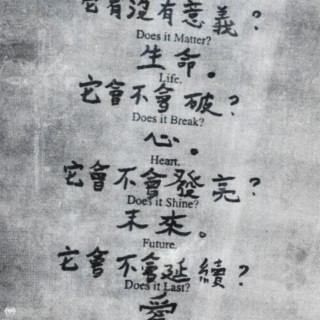 它有沒有意義?
Does it Matter?
生命。
Life.
它會不會破?
Does it Break?
心。
Heart.
它會不會發亮?
Does it Shine?
未來。
Future.
它會不會延續?
Does it Last?
愛